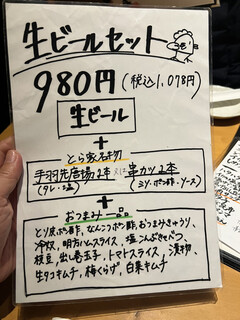 生ビールセット
980円 (税込1,078円)
生ビール
+
とら家名物
手羽先唐揚2本 又は 串カツ2本
(タレ・塩) (ミソ・ポン酢・ソース)
+
おつまみ一品
とり皮ポン酢、なんこつポン酢、おつまみきゅうり、
冷奴、明方ハムスライス、塩こんぶキャベツ、
枝豆、出し巻玉子、トマトスライス、漬物、
生タコキムチ、梅くらげ、白菜キムチ